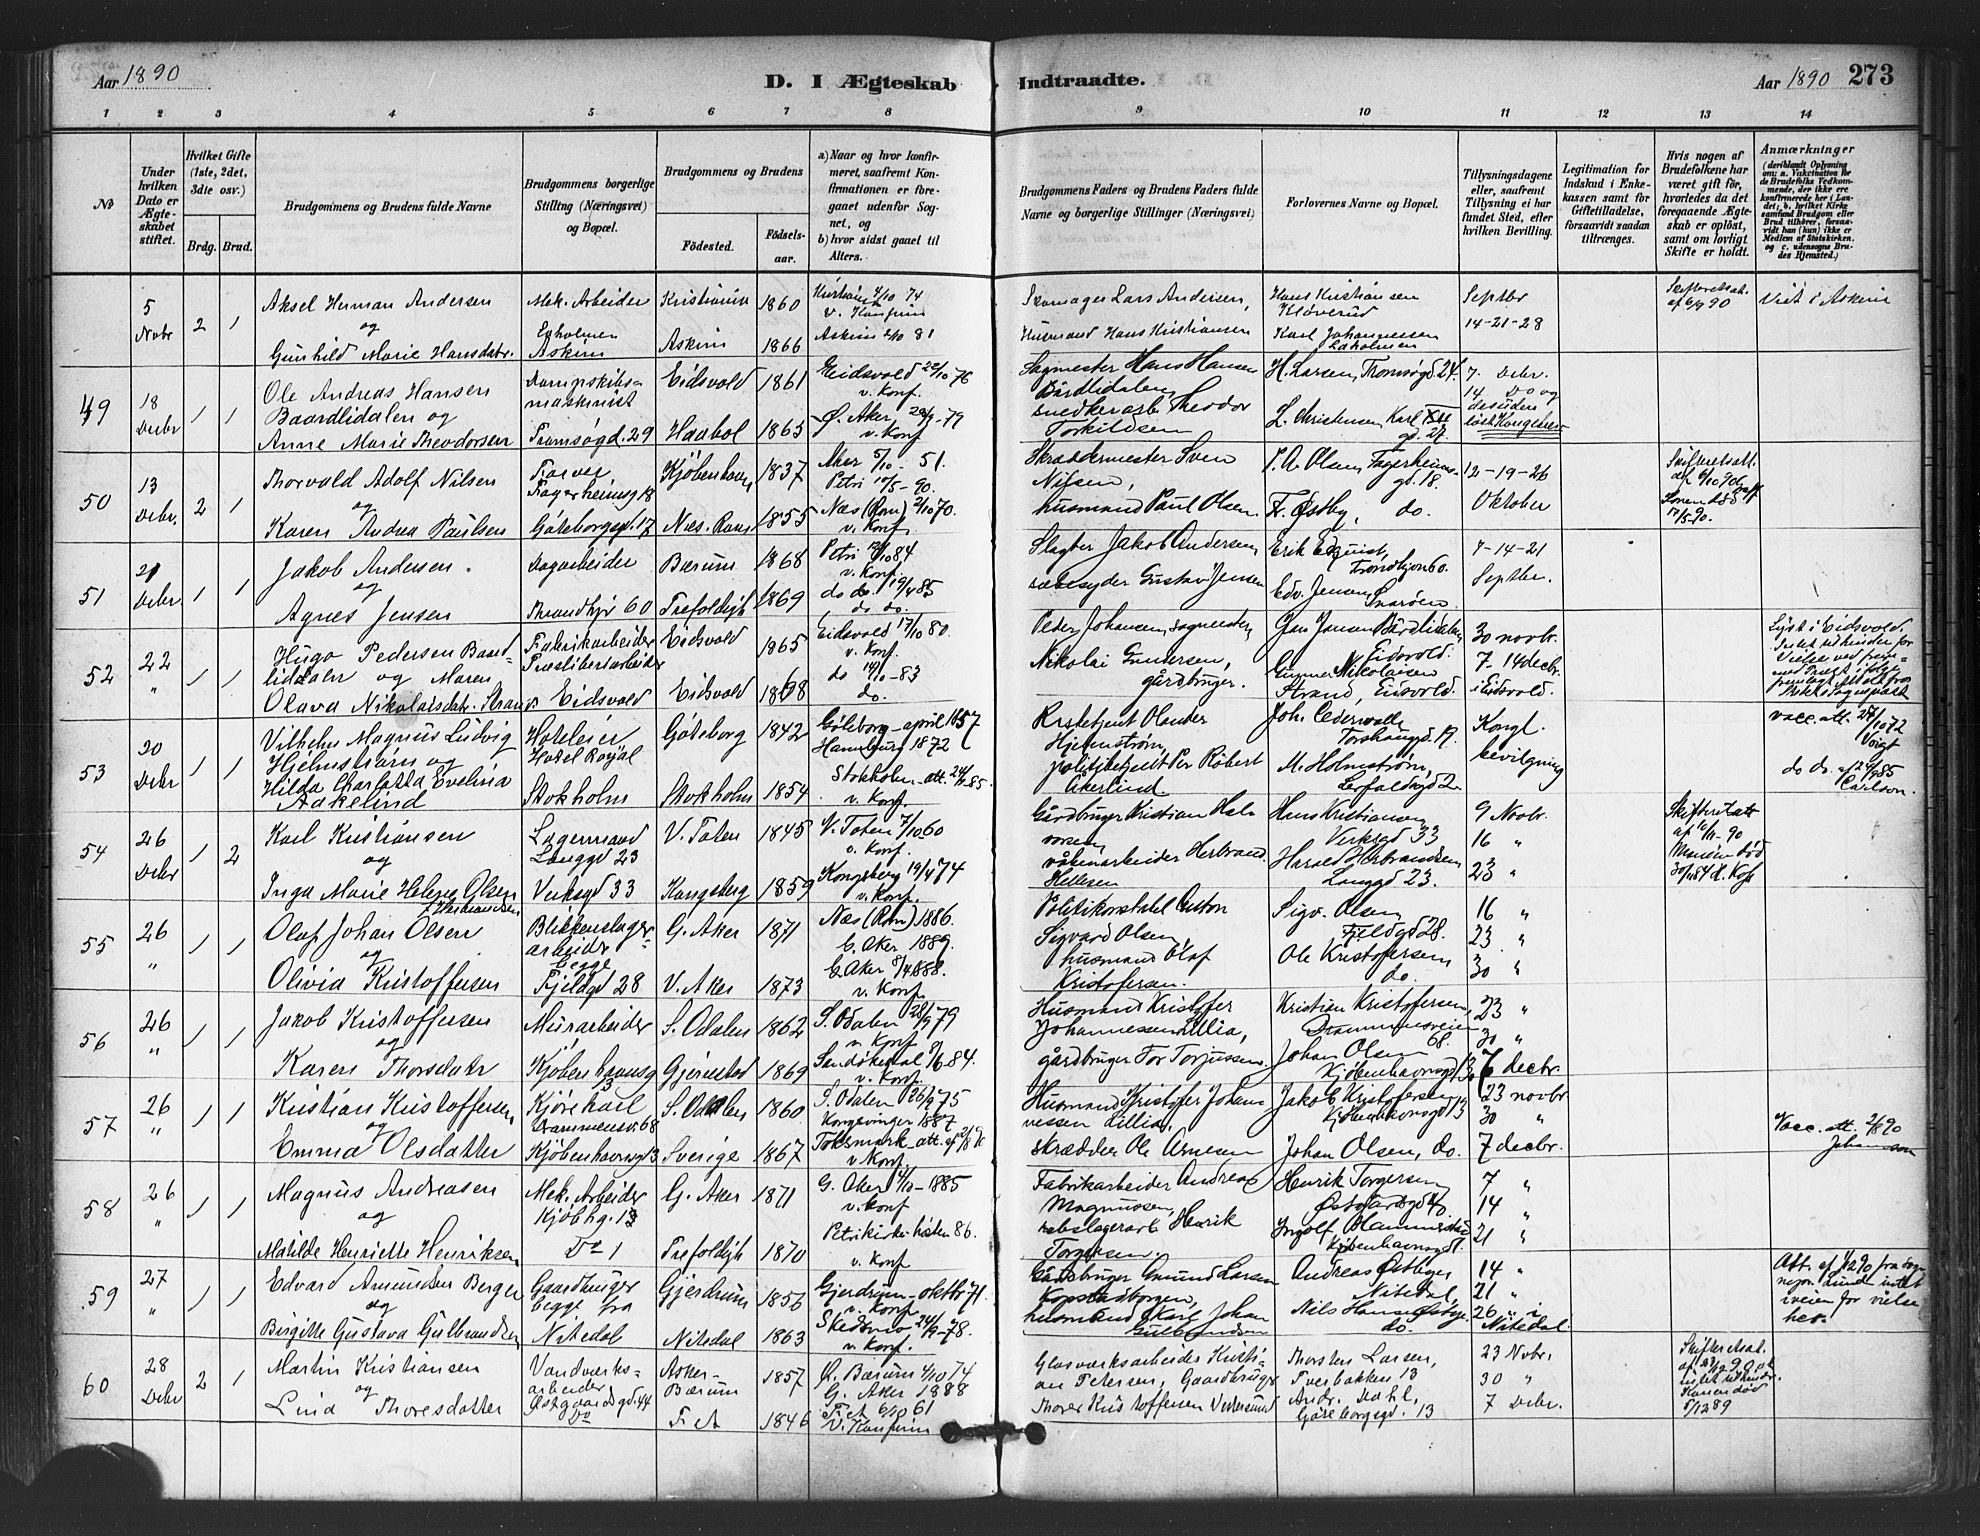 Aar 1890
D. I Ægteskab Indtraadte.
Aar 1890 273
1 2 3 4 5 6 7 8 9 10 11 12 13 14
No
Under hvilken Dato er Ægteskabet stiftet.
Hvilket Gifte (1ste, 2det, 3die osv.)
Brdg. Brud.
Brudgommens og Brudens fulde Navne
Brudgommens borgerlige Stilling (Næringsvei) og Bopæl.
Brudgommens og Brudens
Fødested.
Fødselsaar.
a) Naar og hvor konfirmeret, saafremt Konfirmationen er foregaaet udenfor Sognet, og
b) hvor sidst gaaet til Alters.
Brudgommens Faders og Brudens Faders fulde Navne og borgerlige Stillinger (Næringsvei)
Forlovernes Navne og Bopæl.
Tillysningsdagene eller, saafremt Tillysning ei har fundet Sted, efter hvilken Bevilling.
Legitimation for Indskud i Enkekassen samt for Giftetilladelse, forsaavidt saadan tiltrænges.
Hvis nogen af Brudefolkene har været gift før, hvorledes da det foregaaende Ægteskab er opløst, samt om lovligt Skifte er holdt.
Anmærkninger
(deriblandt Oplysning om: a. Vakcination for de Brudefolks Vedkommende, der ikke ere konfirmerede her i Landet; b. hvilket Kirkesamfund Brudgom eller Brud tilhører, forsaavidt han (hun) ikke er Medlem af Statskirken, og c. udensogns Brudes Hjemsted.)
5 Novbr 2 1
Aksel Herman Andersen
og
Gunhild Marie Hansdatr.
Mek. Arbeider
Askim
Kristiania 1860
Askim 1866
Askim 2/10 81
Skomager Lars Andersen,
Husmand Hans Kristiansen
Hans Kristiansen
Kløverud
Karl Johannessen
Septbr
14-21-28
Skifteretsat.
Viet i Askim
49
18 Decbr 1 1
Ole Andreas Hansen
Baardlidalen og
Anne Marie Theodorsen
Dampskibs-
maskinist
Tromsøgd. 29
Eidsvold 1861
Haabøl 1865
Eidsvold 22/10 76
v. Konf.
Ø. Aker 28/9-79
v. Konf
Sagmester Hans Hansen
Bårdlidalen,
snedkerarb. Theodor
Torkildsen
H. Larsen, Tromsøgd 24.
L. Christensen, Karl XII
gd. 27.
7. Decbr.
14 Do og
desuden
løst Kongebrev
50
13 Decbr. 2 1
Thorvald Adolf Nilsen
og
Karen Andrea Paulsen
Farver
Fagerheimsg 18
Göteborggd. 17
Kjøbenhavn 1837
Næs. Rom 1855
Aker 5/10 - 51.
Petri 18/5 - 90.
Næs (Rom) 2/10 70.
v. Konf.
Skræddermester Sven
Nilsen,
husmand Paul Olsen.
P. A. Olsen, Fagerheims-
gd. 18.
F. Østby, do.
12-19-26
Oktober
Skifteretsatt.
51
21 Decbr 1 1
Jakob Andersen.
og
Agnes Jensen
Dagarbeider
Trondhj. 60
Bærum 1868
Trefoldigh 1869
Petri 12/10 84
v. Konf.
do do. 19/4 85
do. do.
Slagter Jakob Andersen,
sæbesyder Gustav Jensen
Erik Edquist,
Trondhjem 60.
Edv. Jensen,
Snarøen.
7-14-21
Septbr.
52
22 " 1 1
Hugo Pedersen Baard-
lidalen og Maren
Olava Nikolaisdatr. Strand
Fabrikarbeider
Træsliberiarbeider
Eidsvold
Eidsvold 1865
Eidsvold 1868
Eidsvold 17/10 80.
v. Konf.
do 14/10-83
do.
Peder Johansen, sagmester,
Nikolai Gundersen,
gårdbruger.
Jan Jensen Bårdlidalen
Eidsvold.
Gunnar Nikolaisen
Strand, Eidsvold.
30 novbr.
7-14 decbr.
i Eidsvold.
Lyst i Eidsvold.
Intet tilhinder for
Vielse ved
53
20 Decbr 1 1
Vilhelm Magnus Ludvig
Hjelmstrøm og
Hilda Charlotta Evelina
Aakelind
Hoteleier
Hotel Royal
Stokholm
Göteborg 1842
Stokholm 1854
Göteborg - april 1857
Hamburg 1872
Stokholm - att. 24/9 85.
v. Konf.
Hjelmstrøm,
politibetjent Per Robert
Åkerlind.
Joh. Cederwall,
Torshaugd 17.
M. Holmstrøm,
Leyfaldsgd 2.
Kongl.
bevilgning
vacc. att. 27/10 72
Voigt
do do. af 24/9 85
Carlson.
54
26 Decbr 1 2
Karl Kristiansen
og
Inga Marie Helene Olsen
f. Herbrandsen
Lagermand
Langgd 23
Verksgd 33
V. Toten 1845
Kongsberg 1859
V. Toten 7/10 60
v. Konf.
Kongsberg 19/4 74
v. Konf.
Gårdbruger Kristian Hal-
vorsen,
våbenarbeider Herbrand
Hellesen
Hans Kristiansen
Verksgd 33
Harald Herbrandsen
Langgd 23.
9 Novbr.
16 "
23 "
Skifteretsatt
af 10/11 - 90
55
26 " 1 1
Olaf Johan Olsen
og
Olivia Kristoffersen
Blikkenslager-
arbeider
begge
Fjeldgd 28
G. Aker 1871
V. Aker 1873
Næs (Rom) 1886.
G. Aker 1889.
G. Aker 8/4 888.
v. Konf.
Politikonstabel Anton
Sigvard Olsen,
husmand Olaf
Kristofersen.
Sigv. Olsen
Fjeldgd 28.
Ole Kristofersen
do.
16 "
23 "
30 "
56
26 " 1 1
Jakob Kristoffersen
og
Karen Thorsdatr
Murarbeider
Kjøbenhavnsg
13
S. Odalen 1862
Gjerestad 1869
S. Odalen 28/9 79
v. Konf.
Sandøkedal 8/6-84.
v. Konf.
Husmand Kristofer
Johannessen Lillia,
gårdbruger Tor Torjussen
Kristian Kristofersen,
Drammensveien
68.
Johan Olsen
Kjøbenhavnsgd 13
23 "
30 "
7 decbr.
57
26 " 1 1
Kristian Kristoffersen
og
Emma Olsdatter
Kjørekarl
Drammensv. 68
Kjøbenhavnsgd 13
S. Odalen 1860
Sverige 1867
S. Odalen 26/9 75
Kongsvinger 1887
Toksmark att. af
v. Konf.
Husmand Kristofer Johan-
nessen Lillia,
skrædder Ole Arnesen
Jakob Kristofersen
Kjøbenhavngd 13
Johan Olsen, do.
23 novbr
30 "
7 decbr.
Vacc. att. 2/8 90
Johansson
58
26 " 1 1
Magnus Andreasen
og
Matilde Henriette Henriksen
Mek. Arbeider
Kjøbhg. 13
Do 1
G. Aker 1871
Trefoldigh 1870
G. Aker 4/10 - 1885
v. Konf
Petrikirke høsten 86.
v. Konf
Fabrikarbeider Andreas
Magnussen,
Henrik
Torgersen.
Henrik Torgersen
Kjøbenhavnsgd 1.
7 "
14 "
21 "
59
27 " 1 1
Edvard Amundsen Berger
og
Birgitte Gustava Gulbrandsen
Gaardbruger
begge fra
Nitedal
Gjerdrum 1856
Nitedal 1863
Gjerdrum - oktbr 71.
v. Konf.
Skedsmo 24/9-78.
v. Konf.
Gårdbruger Amund Larsen
husmand Karl Johan
Gulbrandsen
Andreas Østbye,
Nitedal,
Nils Hansen
do.
14 "
21 "
26 " i
Nitedal.
Att. af fra sogn
Lund intet
iveien for vielse
her.
60
28 Decbr 2 1
Martin Kristiansen
og
Lina Thoresdatter
Vandværks-
arbeider
Østgaardsgd. 44
Do
Asker-
Bærum 1857
F. A 1846
Ø. Bærum 4/10 74
G. Aker 1888
F. A 6/10 61
V. Konfirm
Glasværksarbeider Kristi-
an Petersen, Gaardbruger
Thorer Kristoffersen Vestersund
Thorsten Larsen,
Tverbakken 13
Andr. Dahl,
Göteborgsgd. 13
23 Novbr.
30 "
7 Decbr.
Skifteretsat.
Konen død
5/12 89